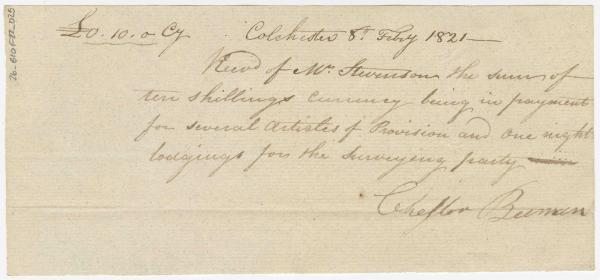 £0.10.0 Cy Colchester 8th. Feby 1821—
Recvd of Mr. Stevenson the sum of
ten shillings currency being in payment
for several Articles of Provision and one night
lodgings for the surveying party
Chester Beeman